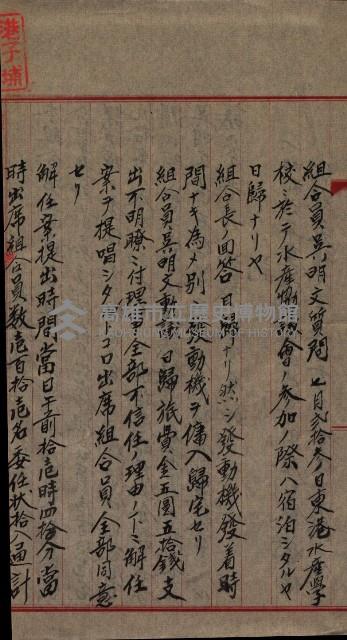 港子埔
組合員吳明文質問 七月貳拾參日東港水産學
校ニ於テ水産懇談會ノ參加ノ際ハ宿泊シタルヤ
日歸ナリヤ
組合長ノ回答 日歸ナリ然シ發動機發着時
間ナキ為メ別 發動機ヲ傭入歸宅セリ
組合員吳明文動議 日歸旅費金五圓五拾錢支
出不明瞭ニ付理事全部不信任ノ理由ノ下ニ解任
案ヲ提唱シタルトコロ出席組合員全部同意
セリ
解任案提出時間 當日午前拾壱時四拾分 當
時出席組合員数壱百拾壱名委任狀拾八通計
高雄市立歷史博物館
KAOHSIUNG MUSEUM OF HISTORY